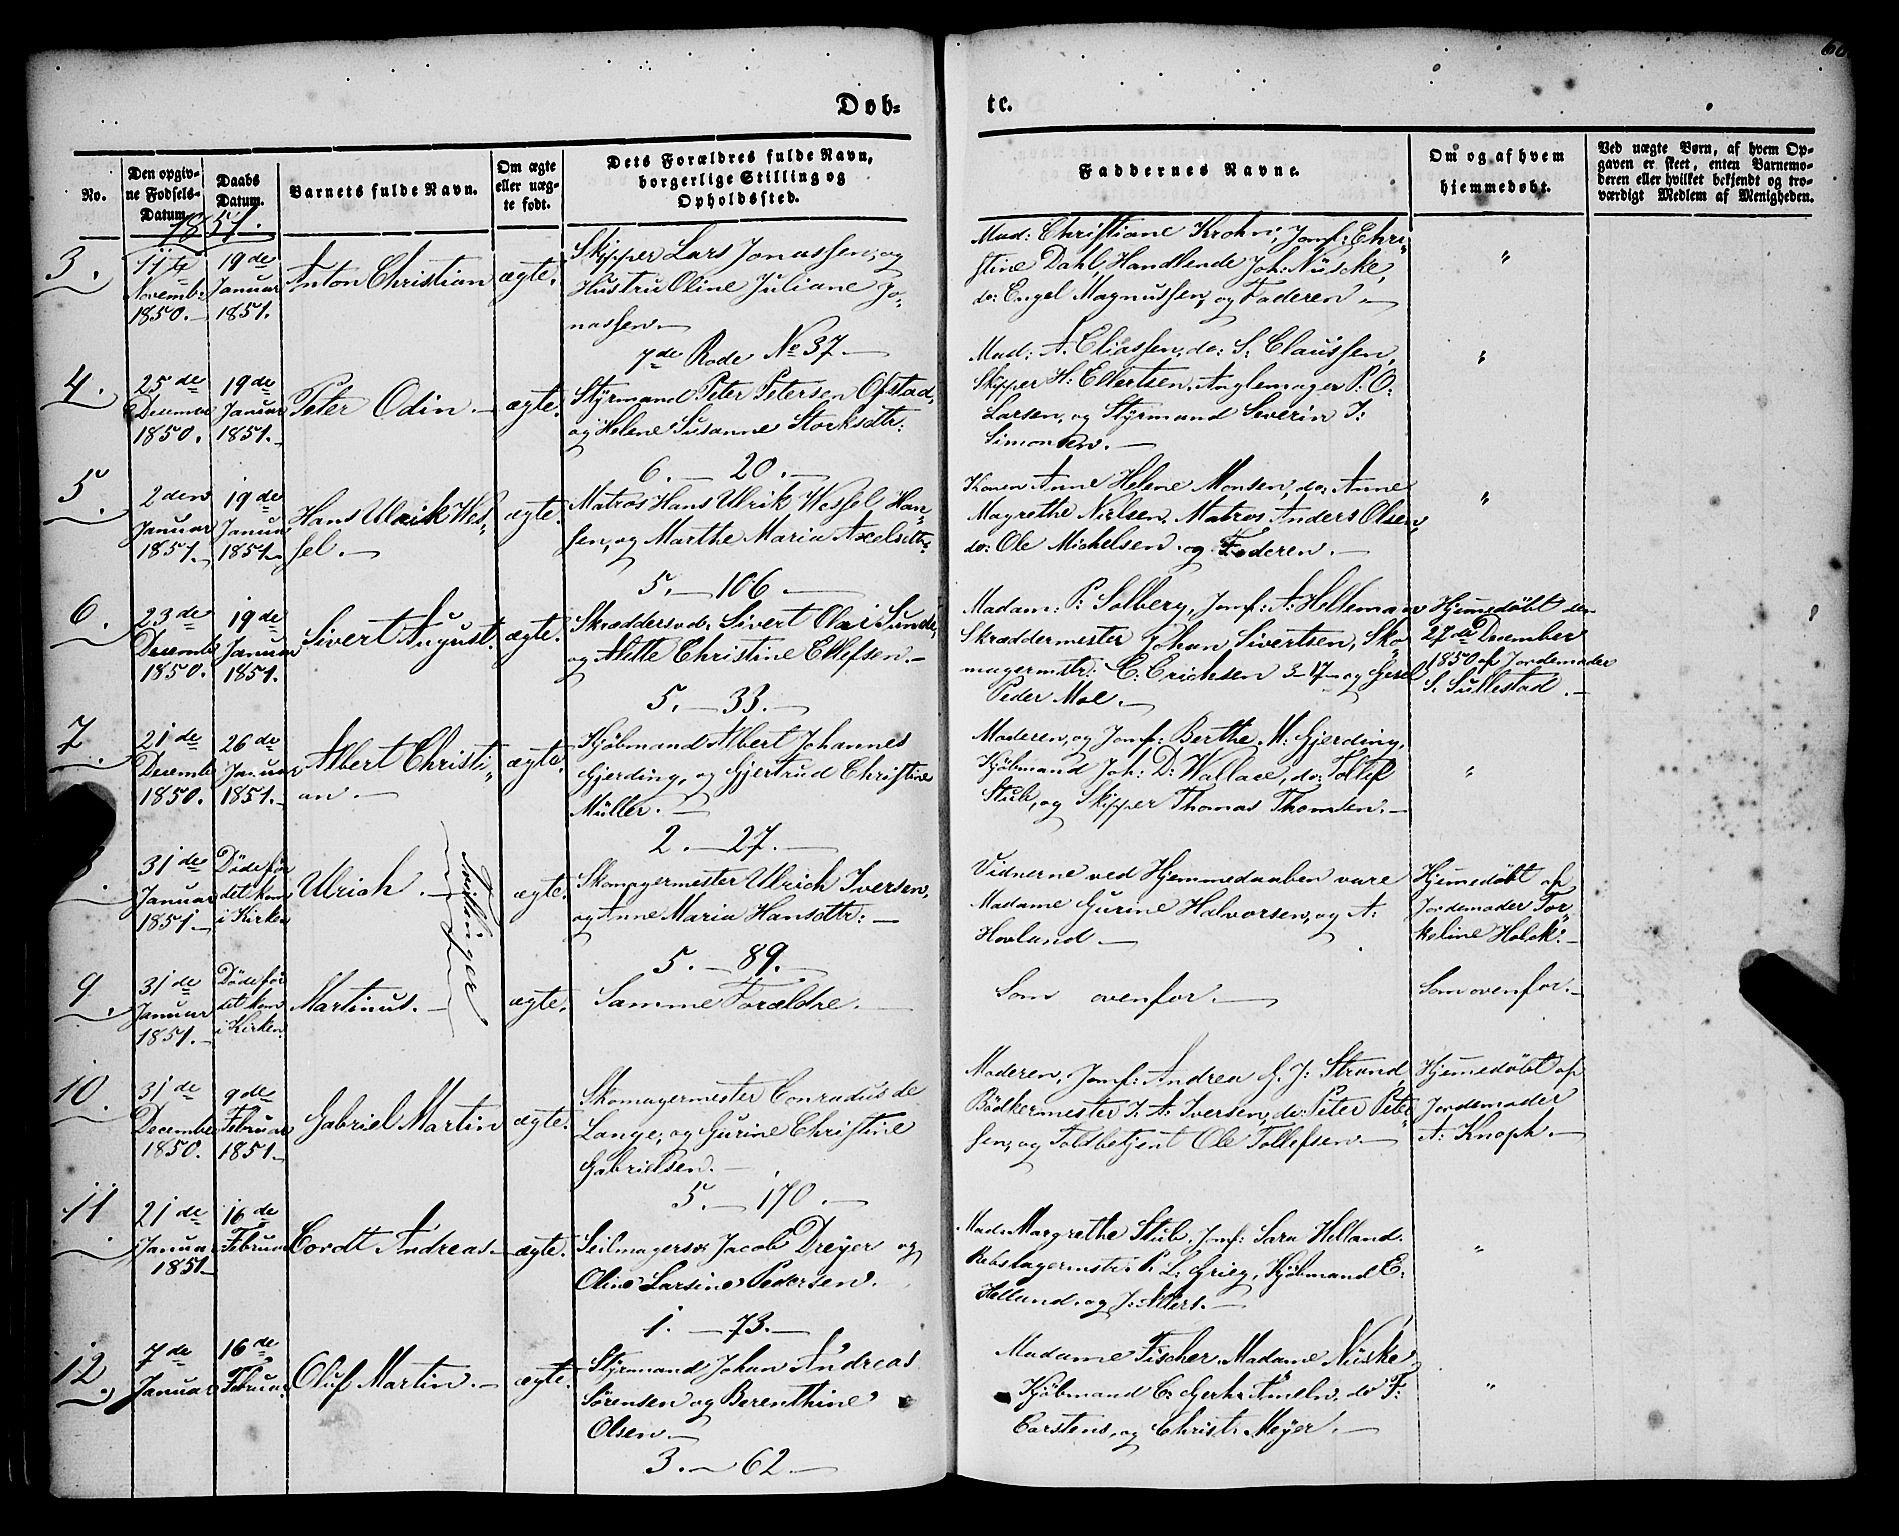 60
Døb-
te.
No.
Den opgiv-
ne Fødsels-
Datum.
Daabs
Datum.
Barnets fulde Navn.
Om ægte
eller uæg-
te født.
Dets Forældres fulde Navn,
borgerlige Stilling og
Opholdssted.
Faddernes Navne.
Om og af hvem
hjemmedøbt.
Ved uægte Børn, af hvem Op-
gaven er skeet, enten Barnemo-
deren eller hvilket bekjendt og tro-
værdigt Medlem af Menigheden.
1851.
3.
11te
Novembr
1850.
19de
Januar
1851.
Anton Christian
ægte.
Skipper Lars Jonassen, og
Hustru Oline Juliane Jo-
nassen.
7de Rode No 37.
Mad: Christiane Krohn, Jomf: Chri-
stine Dahl, Handlende Joh: Nüscke,
do: Engel Magnussen, og Faderen.
"
4.
25de
Decembr
1850.
19de
Januar
1851.
Peter Odin.
ægte.
Styrmand Peter Petersen Ofstad,
og Helene Susanne Storksdtr:
6. 20.
Mad: A. Eliassen, do: S. Claussen,
Skipper H: Ellertsen, Anglemager P. O:
Larsen, og Styrmand Severin J:
Simonsen.
"
5.
2den
Januar
1851.
19de
Januar
1851.
Hans Ulrik Wes-
sel.
ægte.
Matros Hans Ulrik Wessel Han-
sen, og Marthe Maria Axelsdtr:
5. 106.
Konen Anne Helene Monsen, do: Anne
Magrethe Nielsen, Matros Anders Olsen,
do: Ole Michelsen og Faderen.
"
6.
23de
Decembr
1850.
19de
Januar
1851.
Sivert August.
ægte.
Skræddersvd: Sivert Olai Sunde,
og Alette Christine Ellefsen.
5. 33.
Madam: P: Solberg, Jomf: A: Helleman
Skræddermester Johan Sivertsen, Sko-
magermstr: C. Erichsen 3-17 og Gesel
Peder Moe.
Hjemedøbt den
27de December
1850 af Jordemoder
S. Sullestad.
7.
21de
Decembr
1850.
26de
Januar
1851.
Albert Christi-
an.
ægte.
Kjøbmand Albert Johannes
Gjerding, og Gjertrud Christine
Müller.
2. 27.
Moderen, og Jomf: Berthe M: Gjerding,
Kjøbmand Joh: D: Wallace, do: Tollef
Stub, og Skipper Thomas Thomsen.
"
8.
31de
Januar
1851.
Døde før
det kom
i Kirken
Ulrich.
Tvillinger
ægte.
Skomagermester Ulrich Iversen,
og Anne Maria Hansdtr:
5. 89.
Vidnerne ved Hjemmedaaben vare
Madame Gurine Halvorsen, og A:
Hovland.
Hjemedøbt af
Jordemoder Tor-
keline Holck.
9.
31de
Januar
1851.
Døde før
det kom
i Kirken
Martinus.
ægte.
Samme Forældre.
Som ovenfor.
Som ovenfor.
10.
31de
Decembr
1850.
9de
Februar
1851.
Gabriel Martin
ægte.
Skomagermester Conradus de
Lange, og Gurine Christine
Gabrielsen.
5. 170.
Moderen, Jomf: Andrea G. J: Strand,
Bødkermester J. A: Iversen, do: Peter Peter-
sen, og Toldbetjent Ole Tollefsen.
Hjemedøbt af
Jordemoder
A: Knoph.
11.
21de
Januar
1851.
16de
Februar
Cordt Andreas
ægte.
Seilmagersv: Jacob Dreyer og
Oline Larsine Pedersen.
1. 73.
Mad: Margrethe Stub, Jomf: Sara Helland,
Rebslagermstr: P. L: Grieg, Kjøbmand E:
Helland, og J: Ahlers.
"
12.
7de
Januar
16de
Februar
Oluf Martin.
ægte.
Styrmand Johan Andreas
Sørensen og Berenthine
Olsen.
3. 62.
Madame Fischer, Madame Nüske,
Kjøbmand C: Gerh: Ameln, do F:
Carstens, og Christ: Meyer.
"